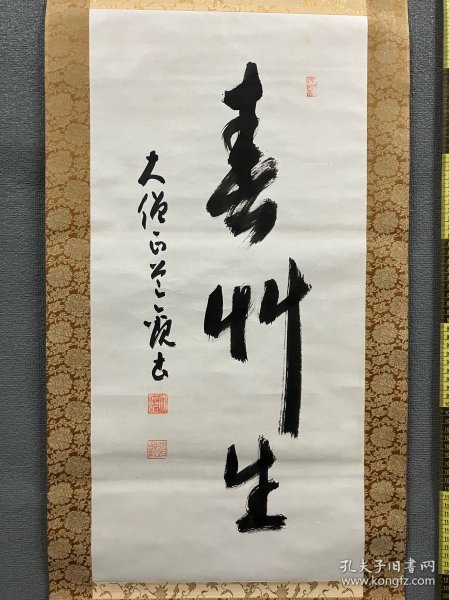 春艸生
大僧正
書
孔夫子旧书网
www.kongfz.com